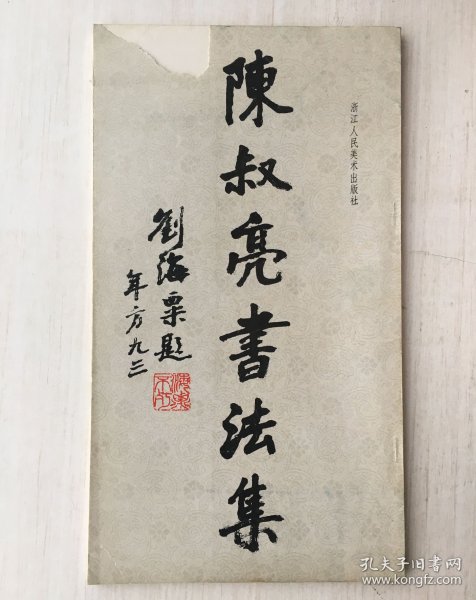 浙江人民美术出版社
陳叔亮書法集
劉海粟題
年方九三
孔夫子旧书网
www.kongfz.com